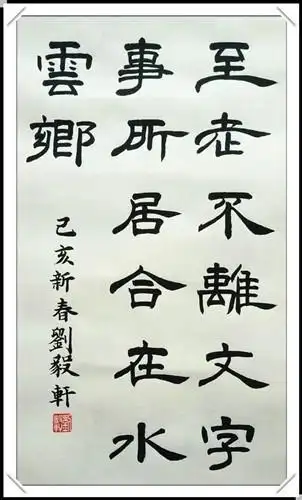 至老不離文字
事所居合在水
雲鄉
己亥新春劉毅軒